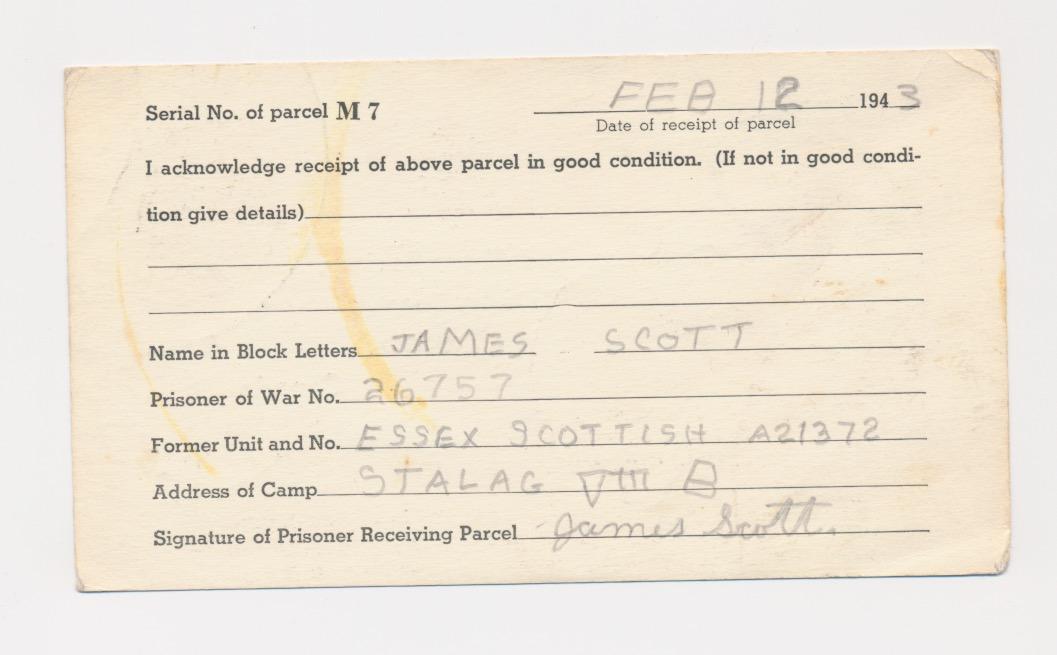 Serial No. of parcel M 7 FEB 12 1943
Date of receipt of parcel
I acknowledge receipt of above parcel in good condition. (If not in good condi-
tion give details)
Name in Block Letters JAMES SCOTT
Prisoner of War No. 26757
Former Unit and No. ESSEX SCOTTISH A21372
Address of Camp STALAG VIII B
Signature of Prisoner Receiving Parcel James Scott.